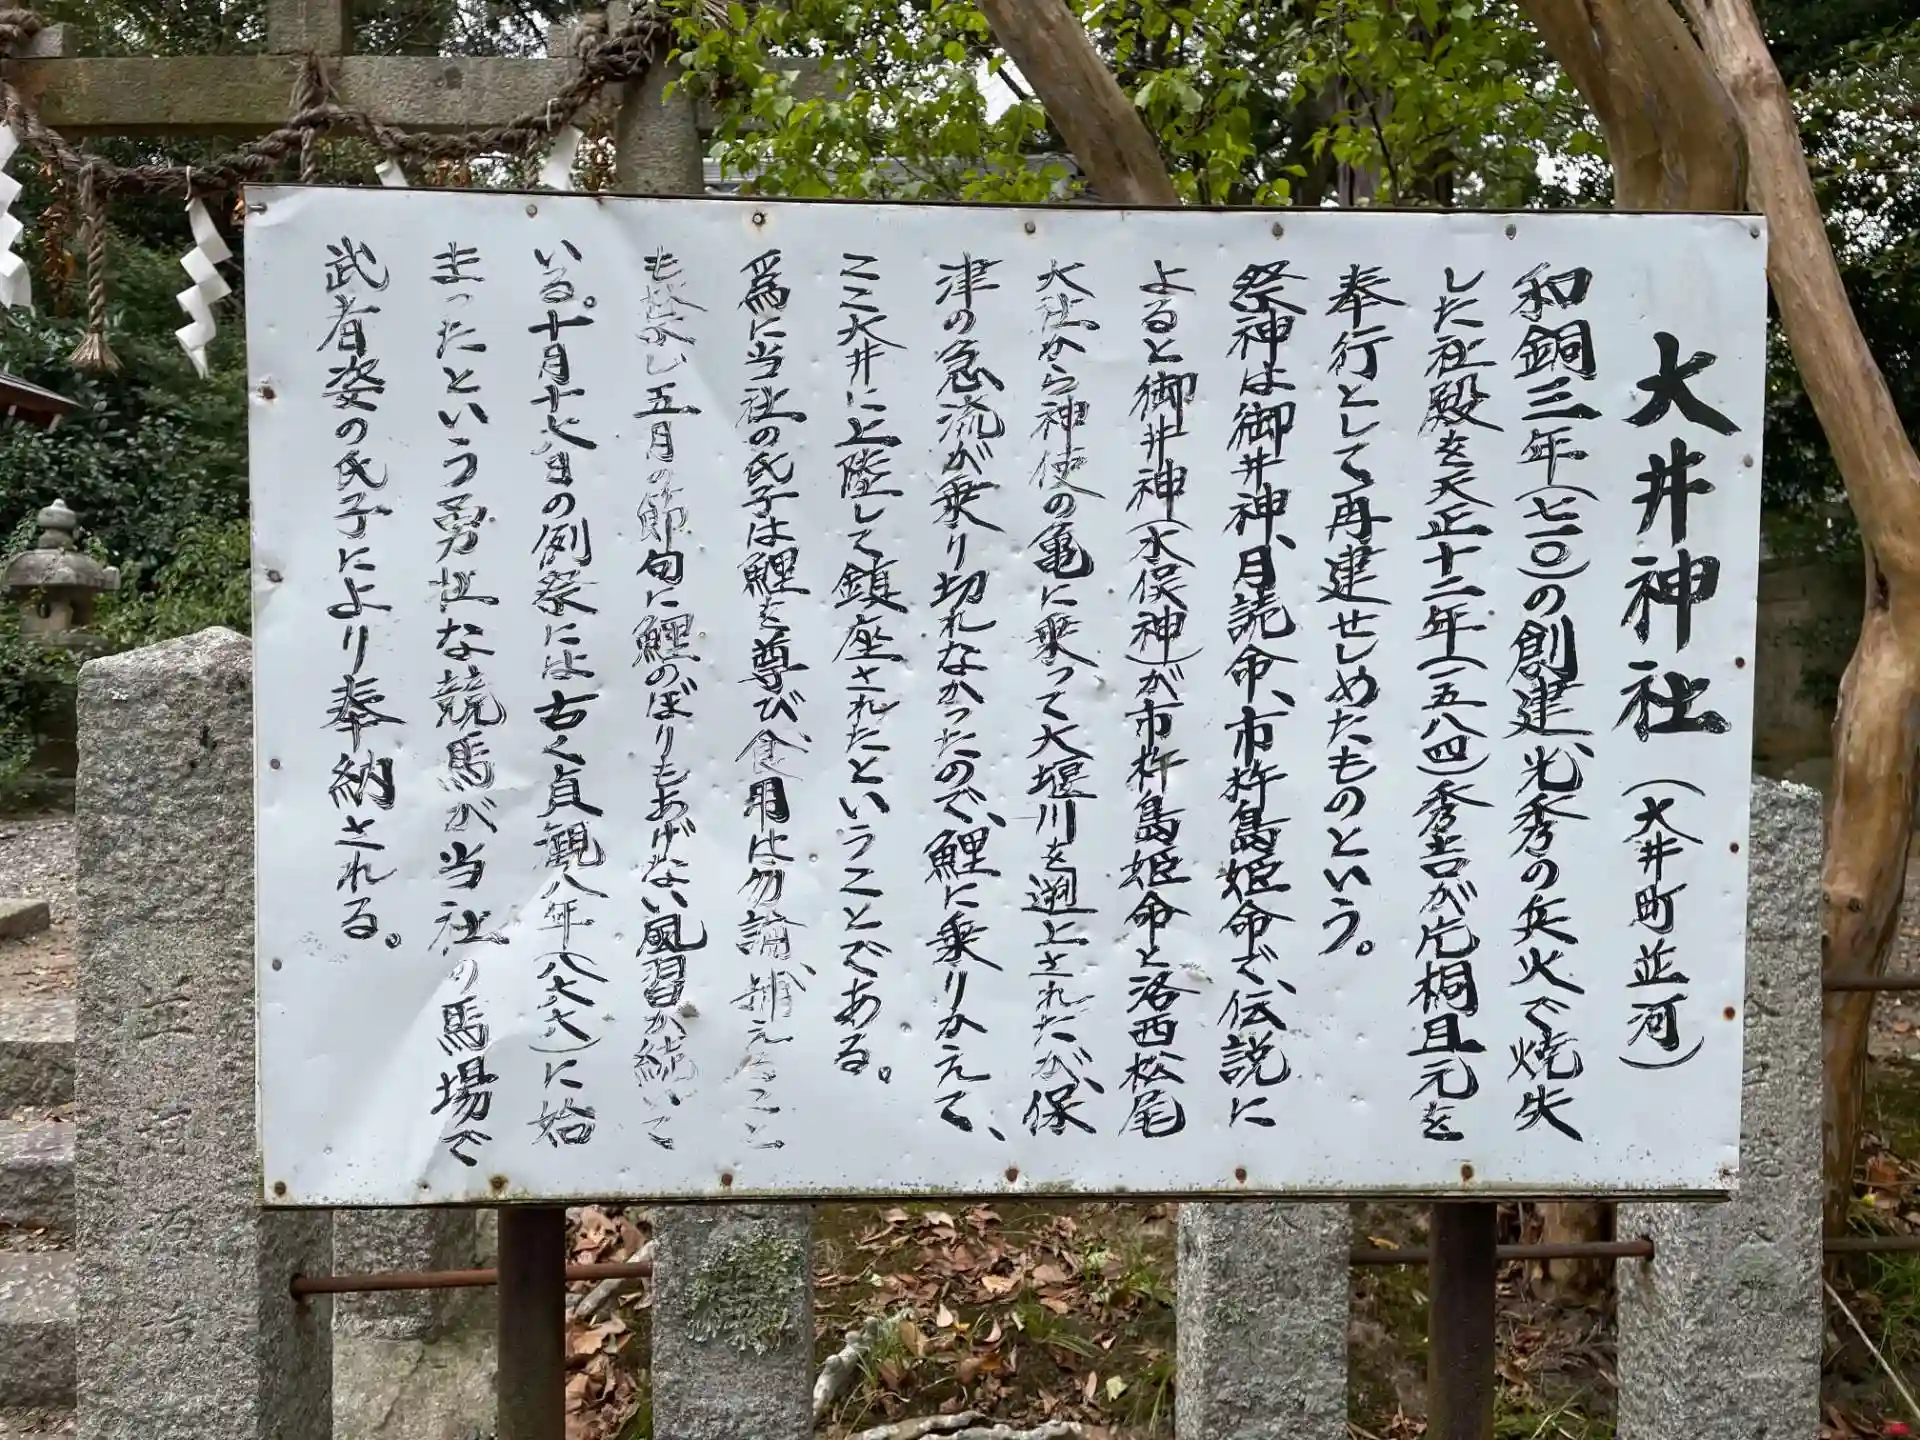 大井神社（大井町並河）
和銅三年（七一〇）の創建、光秀の兵火で焼失
した社殿を天正十二年（一五八四）秀吉が片桐且元を
奉行として再建せしめたものという。
祭神は御井神、月読命、市杵島姫命で、伝説に
よると御井神（水俣神）が市杵島姫命と洛西松尾
大社から神使の亀に乗って大堰川を遡上されたが、保
津の急流が乗り切れなかったので、鯉に乗りかえて、
ここ大井に上陸して鎮座されたということである。
爲に当社の氏子は鯉を尊び、食用は勿論、捕えること
も禁じ五月の節句に鯉のぼりもあげない風習が続いて
いる。十月十七日の例祭には古く貞観八年（八六六）に始
まったという勇壮な競馬が当社の馬場で
武者姿の氏子により奉納される。